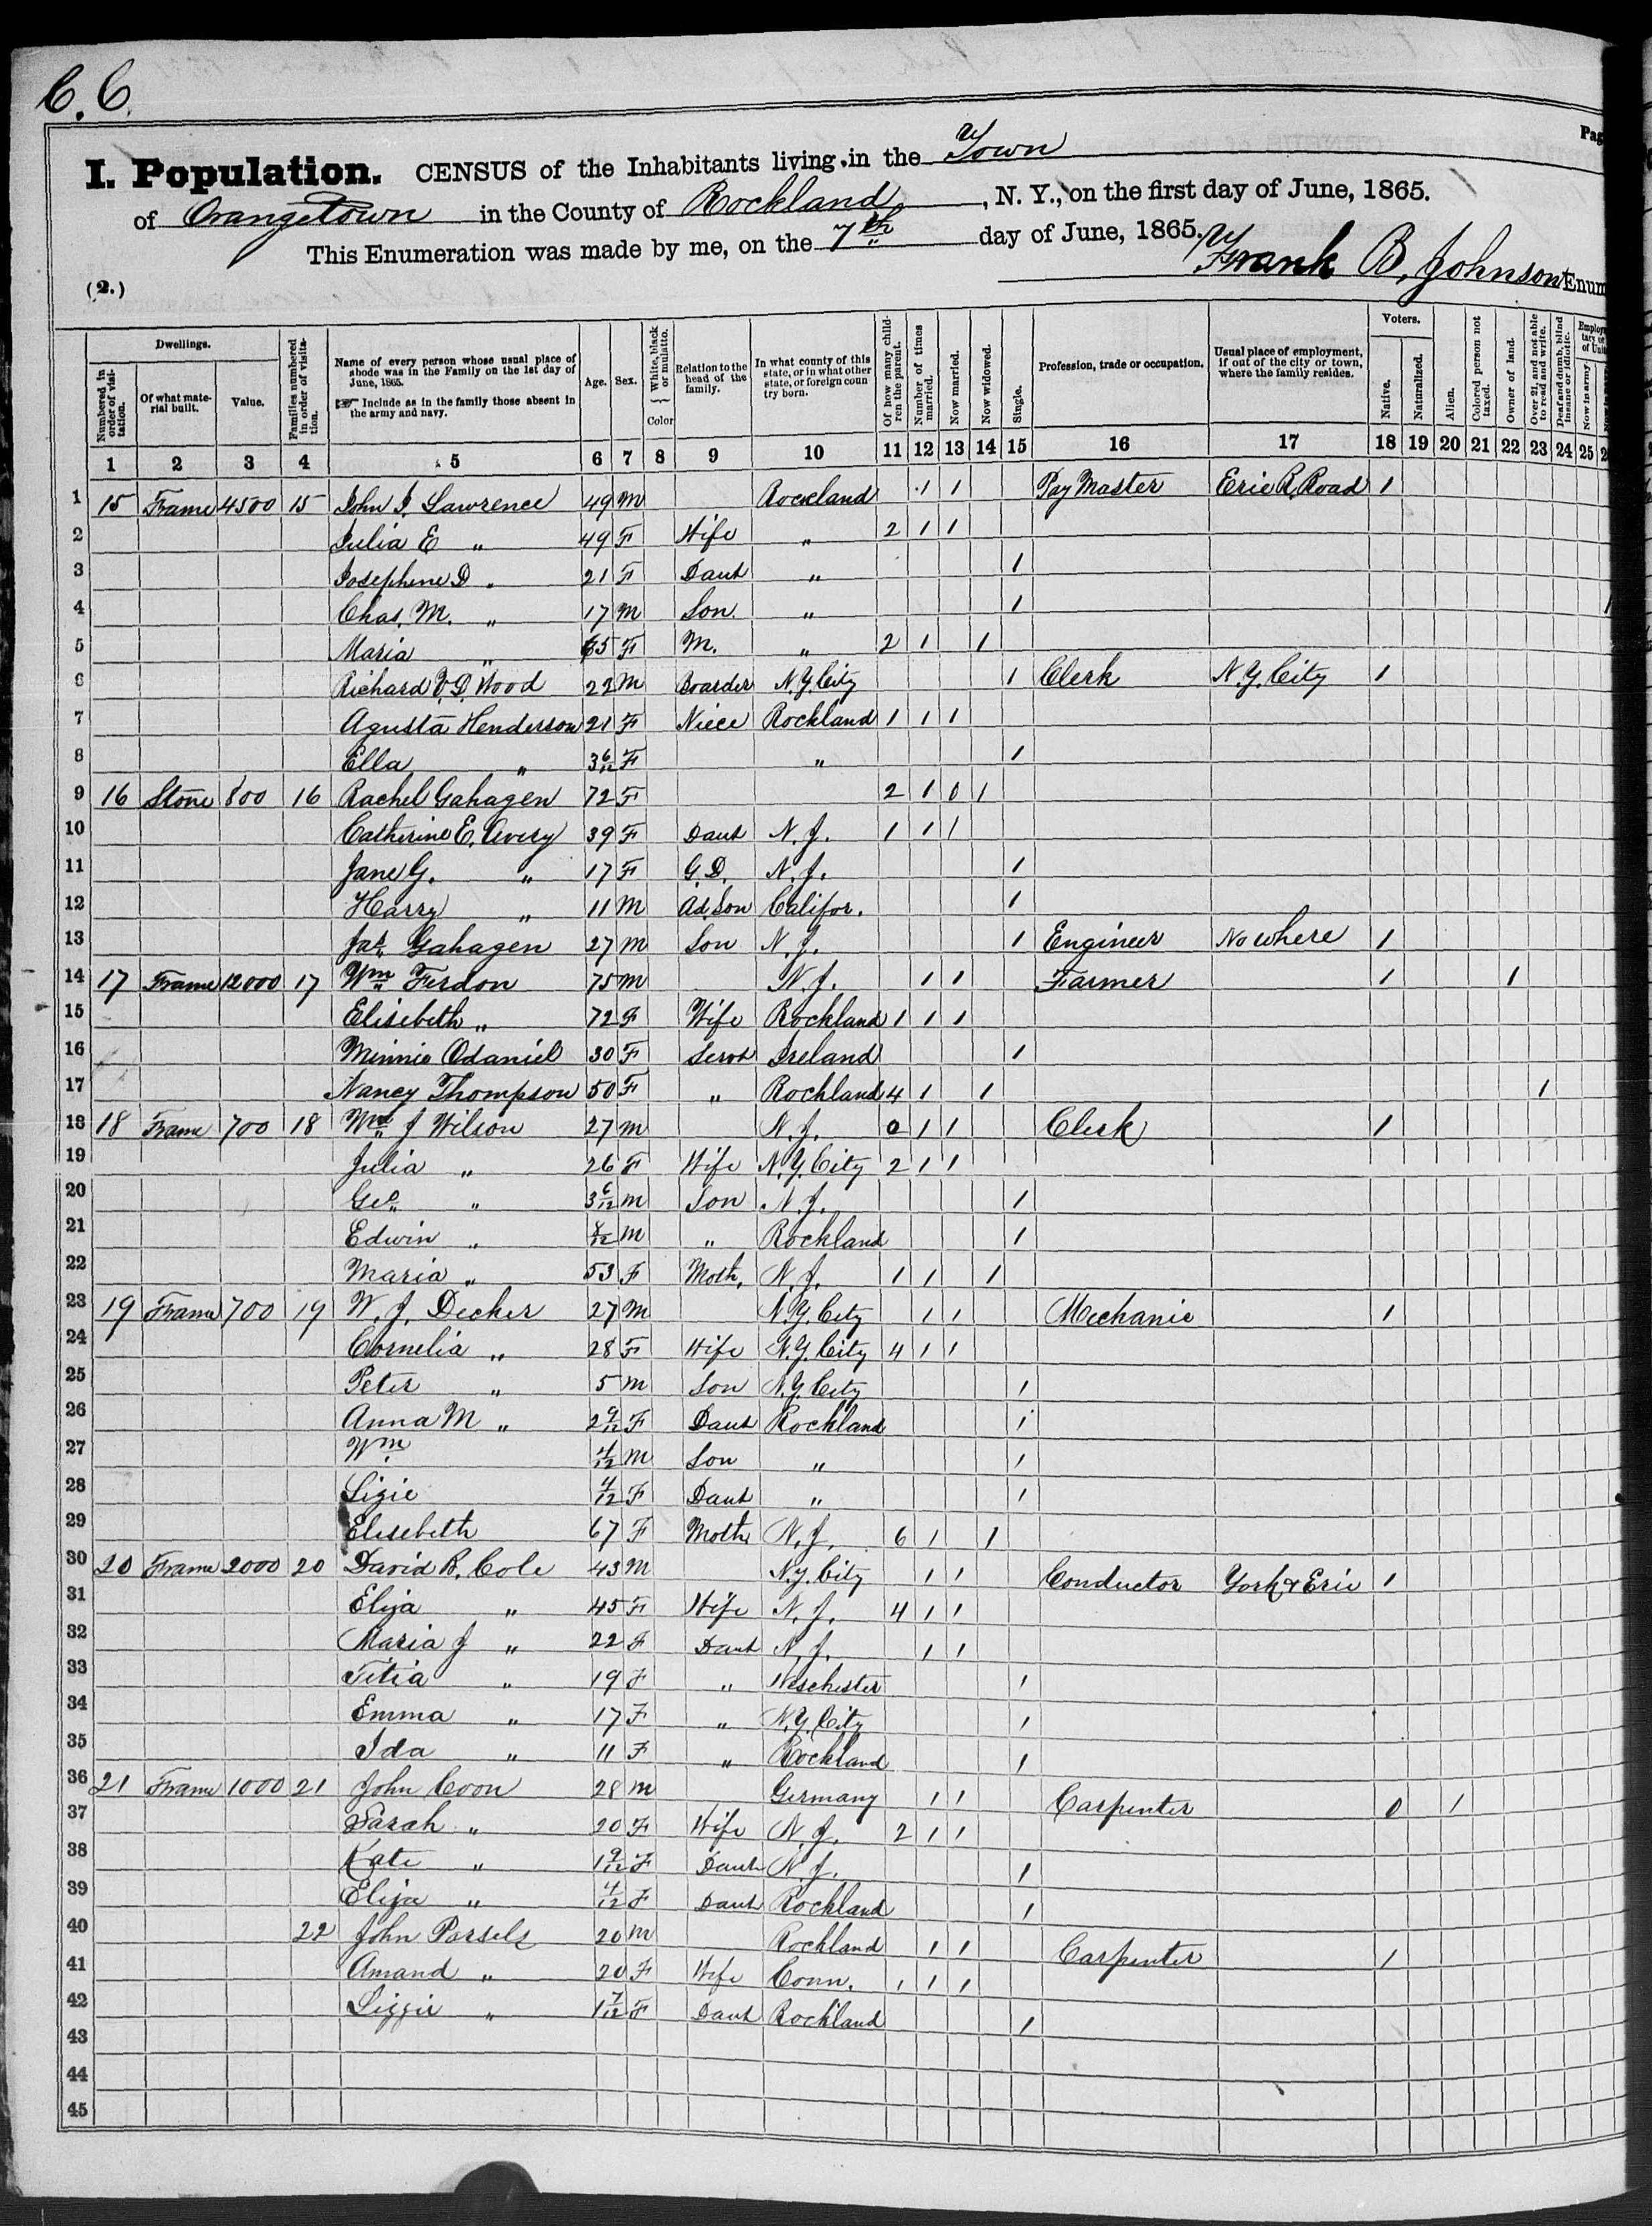 C. C.
Pag
I. Population. CENSUS of the Inhabitants living in the Town
of Orangetown in the County of Rockland, N. Y., on the first day of June, 1865.
This Enumeration was made by me, on the 7th day of June, 1865.
Frank B. Johnson Enum
(2.)
Dwellings. Voters.
Numbered in order of visitation. Of what material built. Value. Families numbered in order of visitation. Name of every person whose usual place of abode was in the Family on the 1st day of June, 1865. ☞ Include as in the family those absent in the army and navy. Age. Sex. White, black or mulatto. Color Relation to the head of the family. In what county of this state, or in what other state, or foreign coun try born. Of how many children the parent. Number of times married. Now married. Now widowed. Single. Profession, trade or occupation. Usual place of employment, if out of the city or town, where the family resides. Native. Naturalized. Alien. Colored person not taxed. Owner of land. Over 21, and not able to read and write. Deaf and dumb, blind insane or idiotic. Now in army.
1 2 3 4 5 6 7 8 9 10 11 12 13 14 15 16 17 18 19 20 21 22 23 24 25 2
1 15 Frame 4500 15 John J. Lawrence 49 M Rockland 1 1 Pay Master Erie R. Road 1
2 Julia E " 49 F Wife " 2 1 1
3 Josephine D " 21 F Daut " 1
4 Chas. M. " 17 M Son " 1 1
5 Maria " 65 F M. " 2 1 1
6 Richard V. D. Wood 22 M Boarder N.Y. City 1 Clerk N.Y. City 1
7 Agusta Henderson 21 F Niece Rockland 1 1 1
8 Ella " 3 6/12 F " 1
9 16 Stone 800 16 Rachel Gahagen 72 F 2 1 0 1
10 Catherine E. Avery 39 F Daut N. J. 1 1 1
11 Jane G. " 17 F G. D. N. J. 1
12 Harry " 11 M Ad. Son Califor. 1
13 Jas. Gahagen 27 M Son N. J. 1 Engineer No where 1
14 17 Frame 12000 17 Wm Ferdon 75 M N. J. 1 1 Farmer 1 1
15 Elisebeth " 72 F Wife Rockland 1 1 1
16 Minnie Odaniel 30 F Servt Ireland 1
17 Nancy Thompson 50 F " Rockland 4 1 1 1
18 18 Frame 700 18 Wm J Wilson 27 M N. J. 0 1 1 Clerk 1
19 Julia " 26 F Wife N.Y. City 2 1 1
20 Geo " 3 6/12 M Son N. J. 1
21 Edwin " /12 M " Rockland 1
22 Maria " 53 F Moth. N. J. 1 1 1
23 19 Frame 700 19 W. J. Decker 27 M N.Y. City 1 1 Mechanic 1
24 Cornelia " 28 F Wife N.Y. City 4 1 1
25 Peter " 5 M Son N.Y. City 1
26 Anna M " 2 9/12 F Daut Rockland 1
27 Wm 4/12 M Son " 1
28 Lizie 4/12 F Daut " 1
29 Elisebeth 67 F Moth N. J. 6 1 1
30 20 Frame 2000 20 David R. Cole 43 M N.Y. City 1 1 Conductor York & Erie 1
31 Eliza " 45 F Wife N. J. 4 1 1
32 Maria J " 22 F Daut N. J. 1 1
33 Titia " 19 F " Weschester 1
34 Emma " 17 F " N.Y. City 1
35 Ida " 11 F " Rockland 1
36 21 Frame 1000 21 John Coon 28 M Germany 1 1 Carpenter 0 1
37 Sarah " 20 F Wife N. J. 2 1 1
38 Kate " 1 9/12 F Daut N. J. 1
39 Eliza " 4/12 F Daut Rockland 1
40 22 John Parsels 20 M Rockland 1 1 Carpenter 1
41 Amand " 20 F Wife Conn. 1 1 1
42 Lizzie " 1 7/12 F Daut Rockland 1
43
44
45